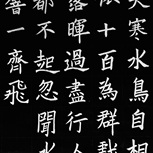 天寒水鳥自相
依十百為群戲
落暉過盡行人
都不起忽聞水
響一齊飛